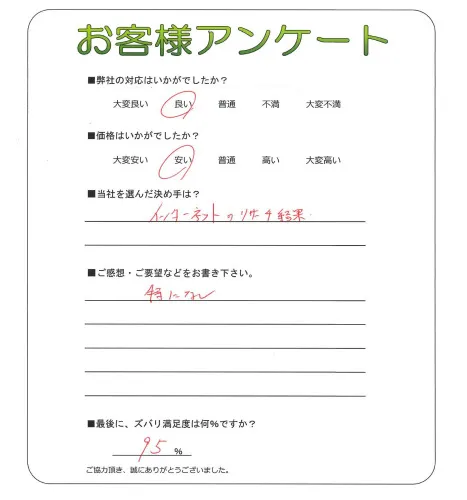 お客様アンケート
■弊社の対応はいかがでしたか?
大変良い 良い 普通 不満 大変不満
■価格はいかがでしたか?
大変安い 安い 普通 高い 大変高い
■当社を選んだ決め手は?
インターネットのリサーチ結果.
■ご感想・ご要望などをお書き下さい。
特になし
■最後に、ズバリ満足度は何%ですか?
95 %
ご協力頂き、誠にありがとうございました。